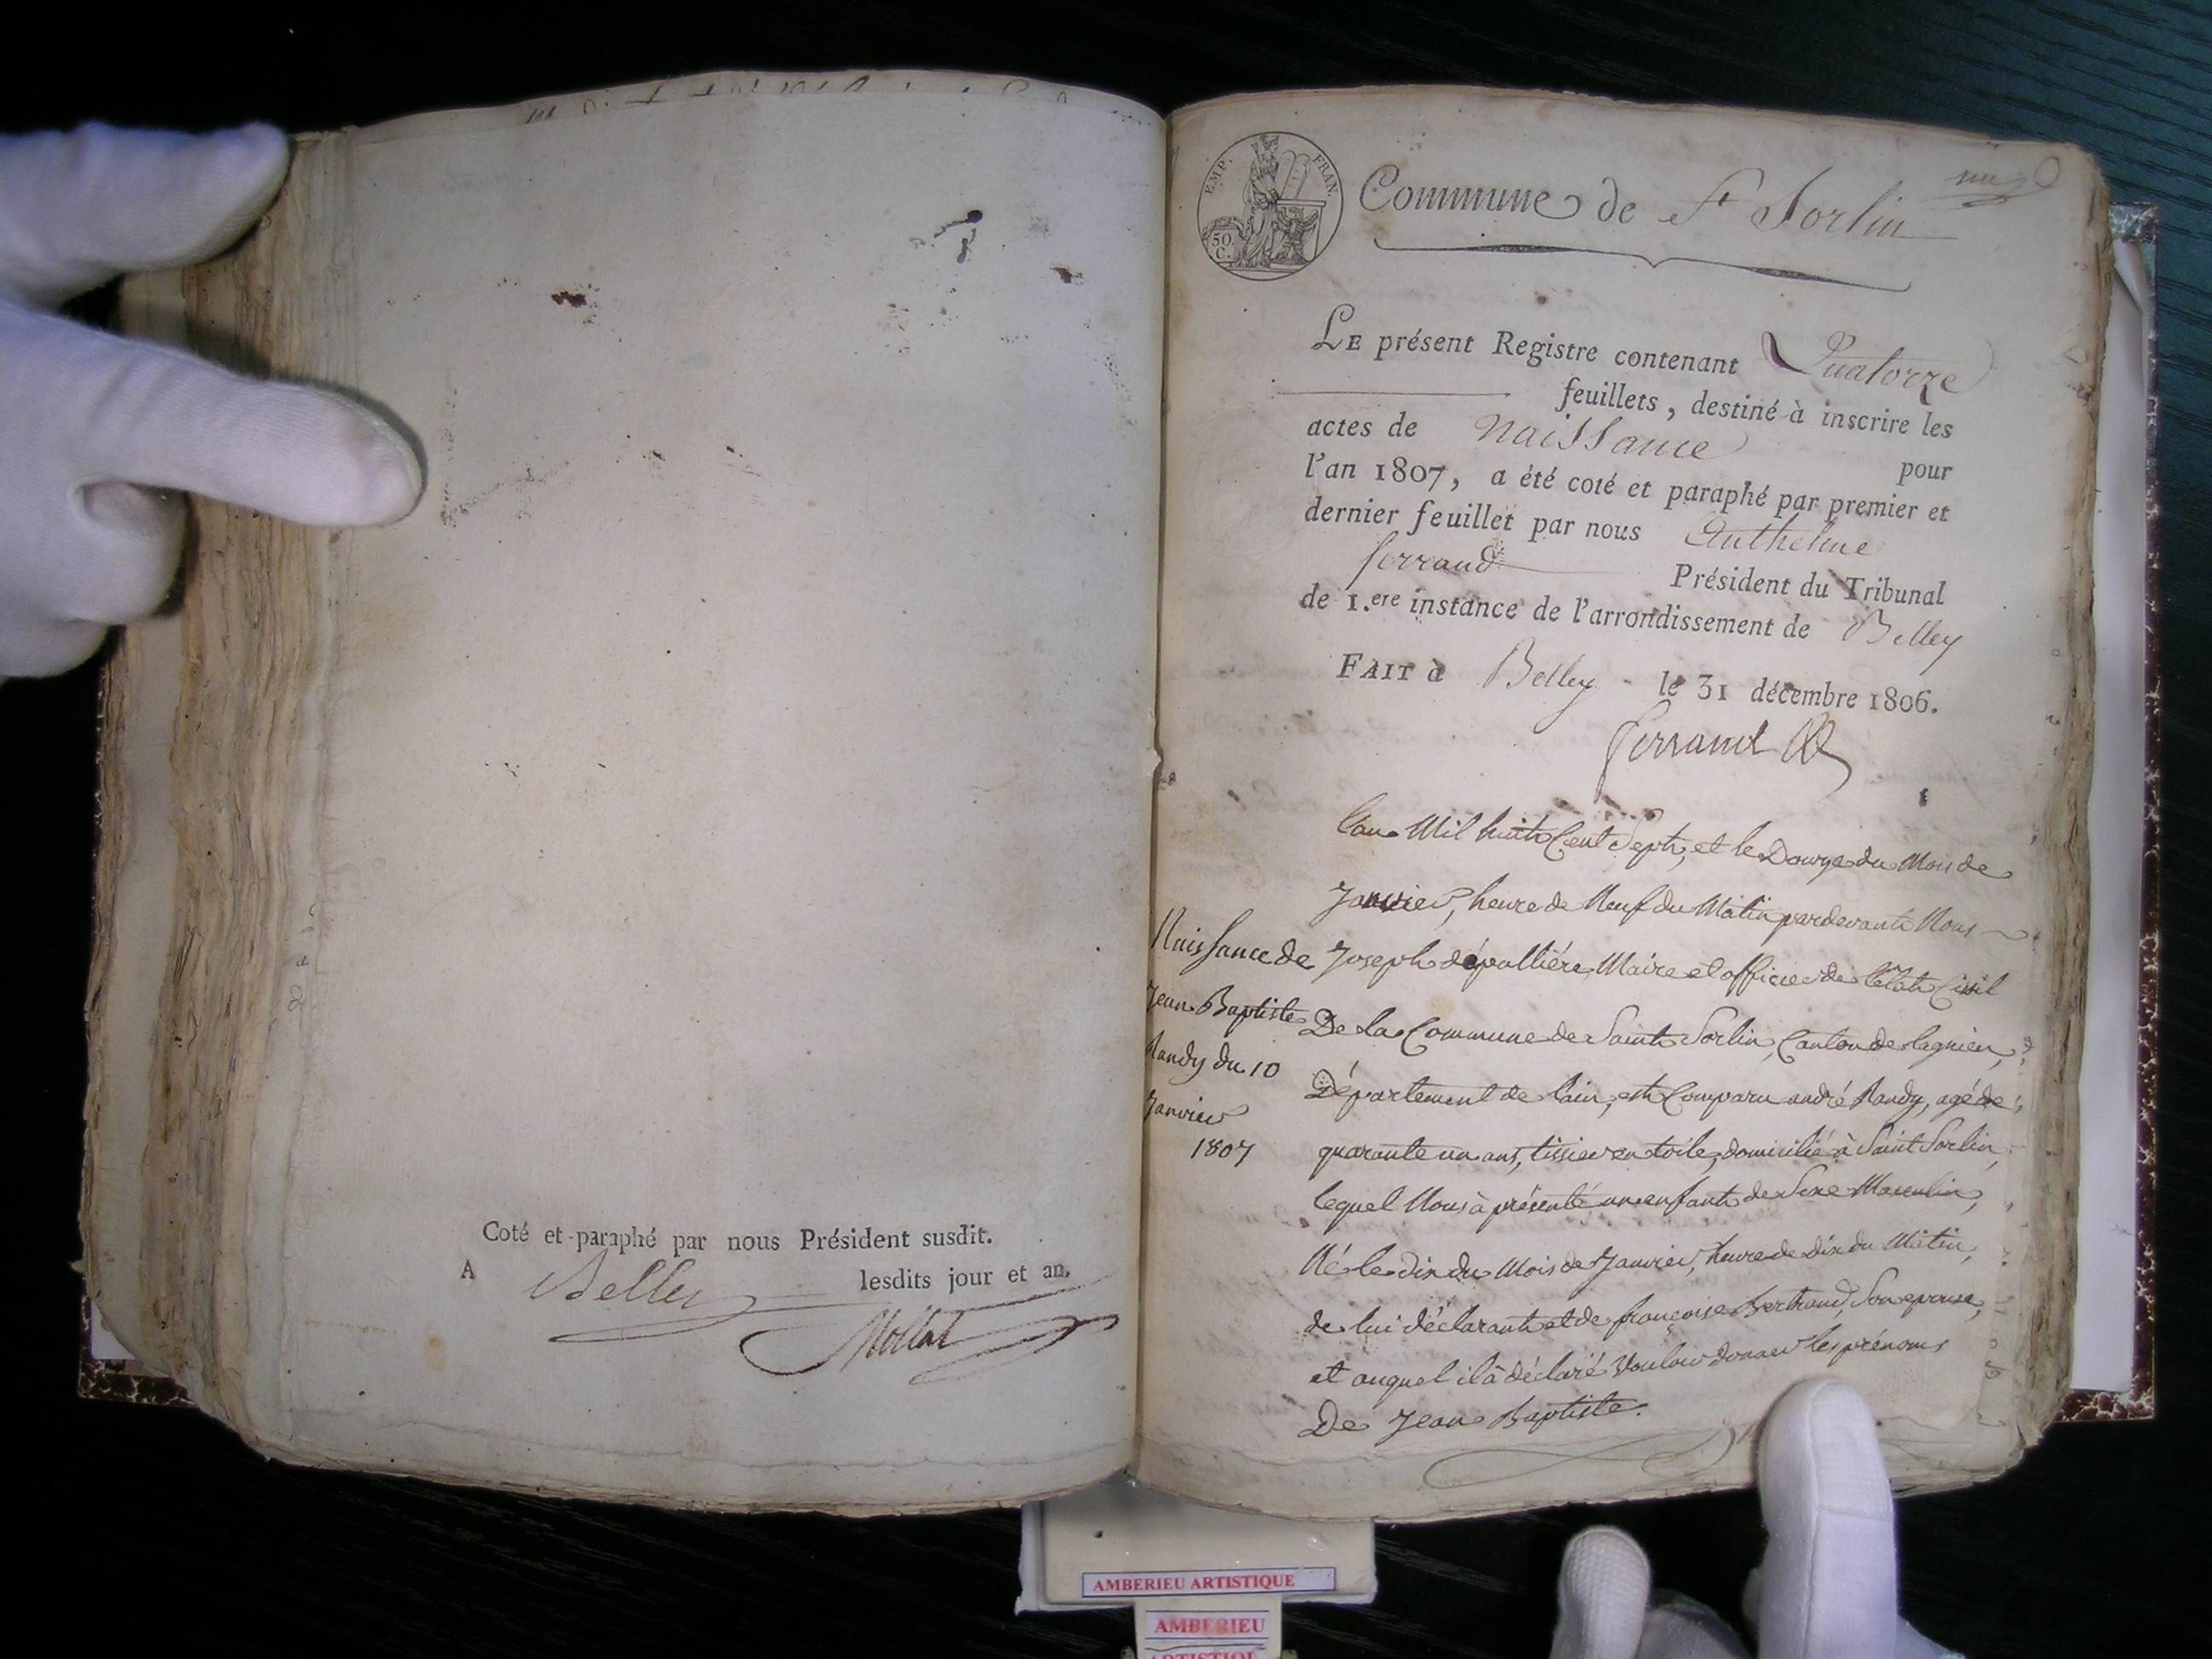 Coté et paraphé par nous Président susdit.
A Belley lesdits jour et an,
EMP. FRAN.
50 C.
Commune de St Sorlin
LE présent Registre contenant Quatorze
feuillets, destiné à inscrire les
actes de Naissance pour
l'an 1807, a été coté et paraphé par premier et
dernier feuillet par nous Anthelme
ferrand Président du Tribunal
de 1.ere instance de l'arrondissement de Belley
FAIT à Belley le 31 décembre 1806.
ferrand
Naissance de
Jean Baptiste
Randy du 10
Janvier
1807
l'an Mil huit Cent Sept, et le Douze du Mois de
Janvier, heure de Neuf du Matin pardevant Nous
Joseph dépallière Maire et officier de l'état Civil
De la Commune de Saint Sorlin, Canton de lagnieu,
Département de l'ain, est Comparu andré Randy, agé de
quarante un ans, tissier en toile, domicilié à Saint Sorlin,
lequel Nous à présenté un enfant de Sexe Masculin,
Né le dix du Mois de Janvier, heure de dix du Matin,
de lui déclarant et de françoise Bertrand, Son epouse,
et auquel il à déclaré Vouloir donner les prénoms
De Jean Baptiste.
AMBERIEU ARTISTIQUE
AMBERIEU
ARTISTIQUE